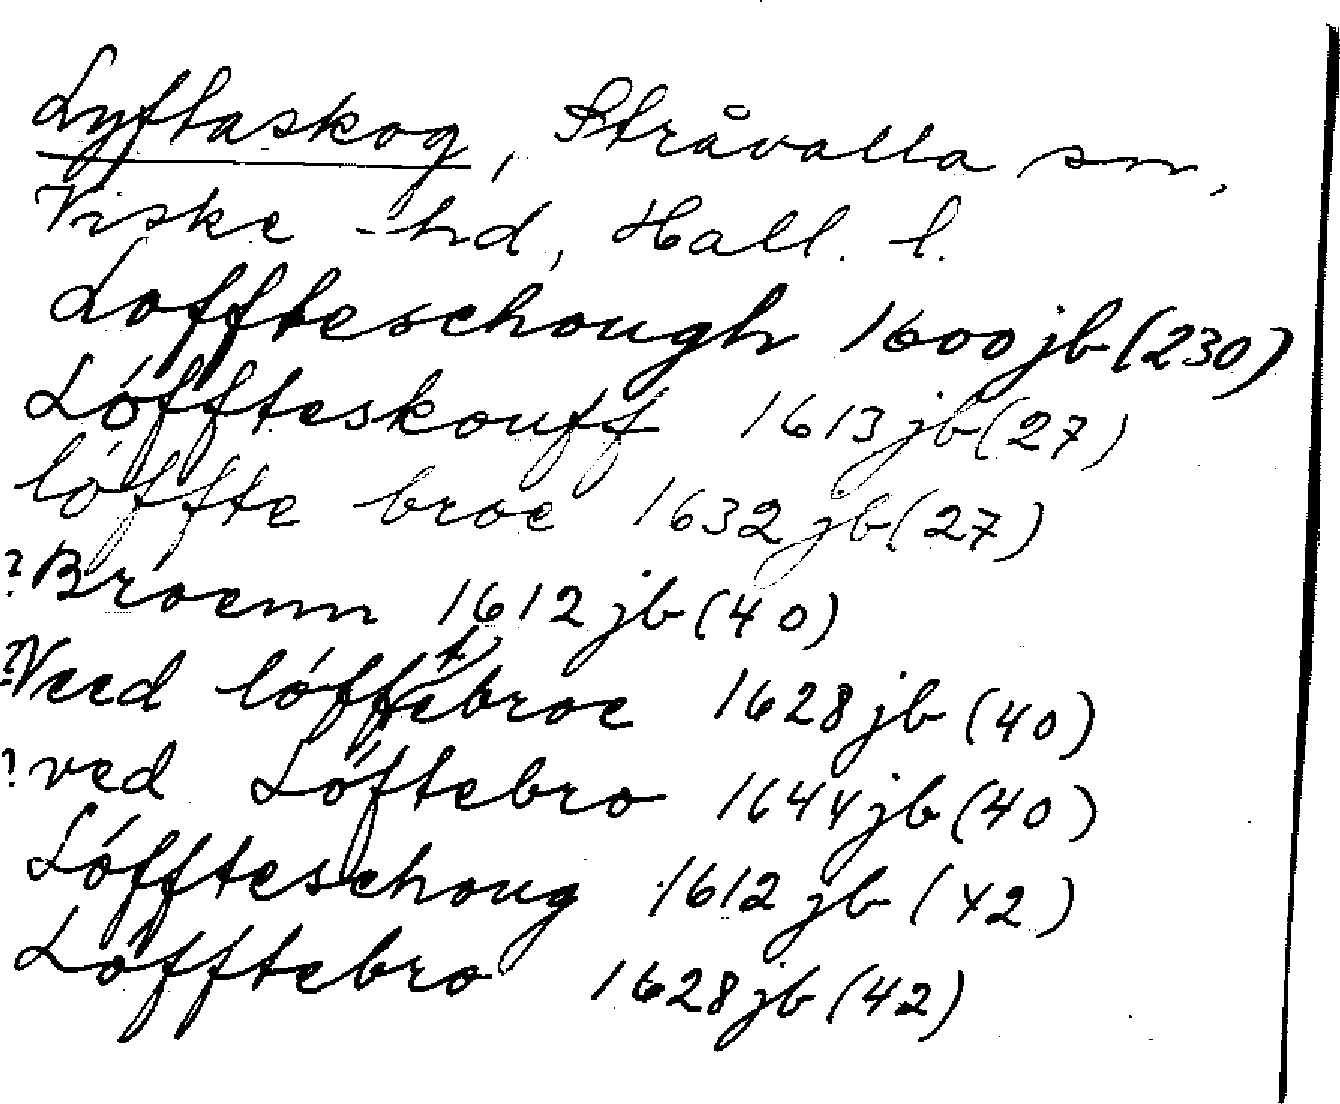 Lyftaskog, Stråvalla sn,
Viske -hd, Hall. l.
Loffteschough 1600 jb (230)
Lóffteskouff 1613 jb (27)
lóffte broe 1632 jb (27)
? Broenn 1612 jb (40)
? Veed lófftebroe 1628 jb (40)
? ved Lóftebro 1644 jb (40)
Lóffteschoug 1612 jb (42)
Lófftebro 1628 jb (42)